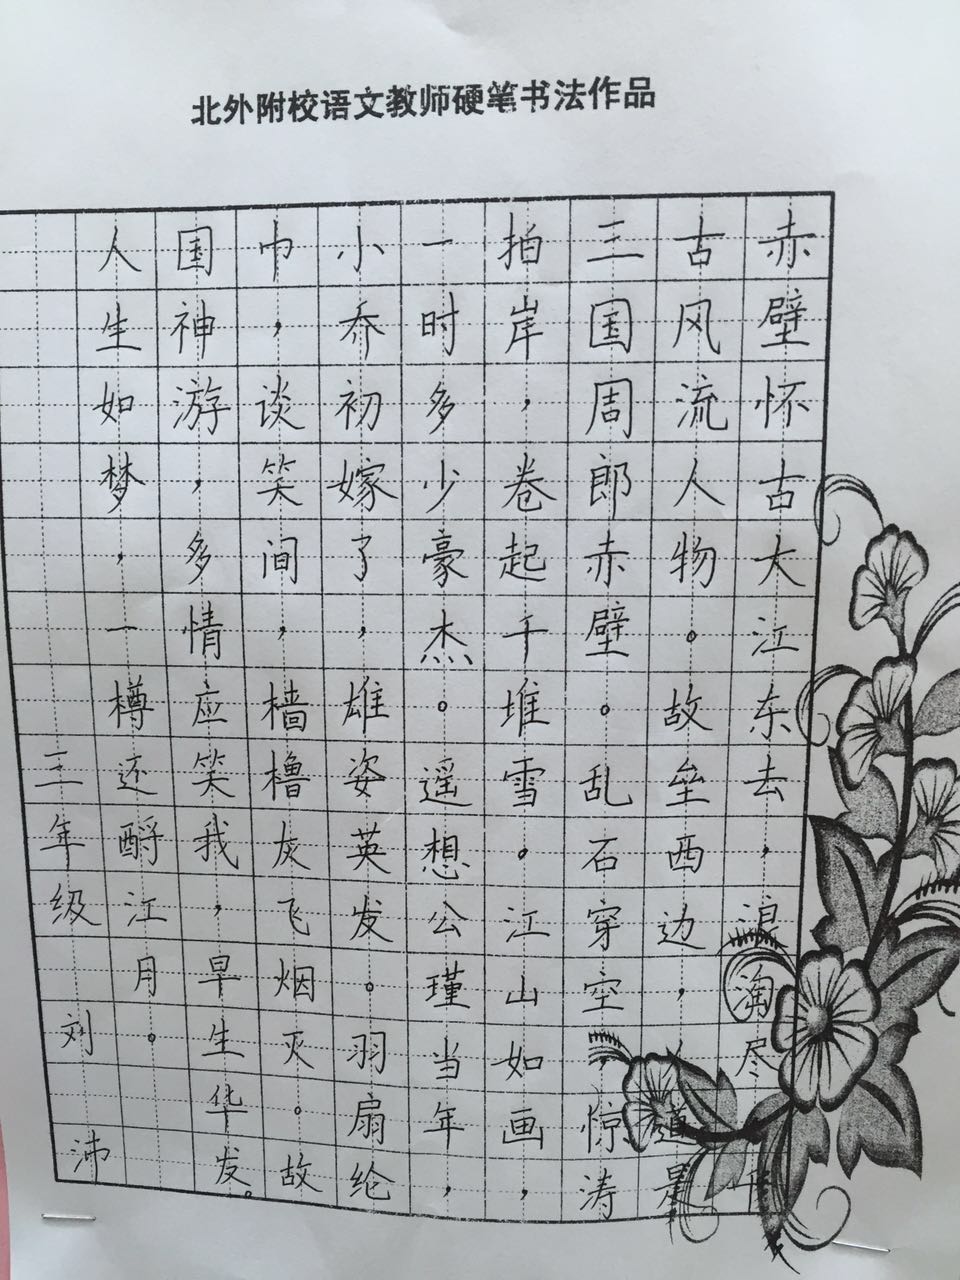 北外附校语文教师硬笔书法作品
赤壁怀古大江东去，浪淘尽千
古风流人物。故垒西边，道是
三国周郎赤壁。乱石穿空，惊涛
拍岸，卷起千堆雪。江山如画，
一时多少豪杰。遥想公瑾当年，
小乔初嫁了，雄姿英发。羽扇纶
巾，谈笑间，樯橹灰飞烟灭。故
国神游，多情应笑我，早生华发。
人生如梦，一樽还酹江月。
三年级 刘 沛